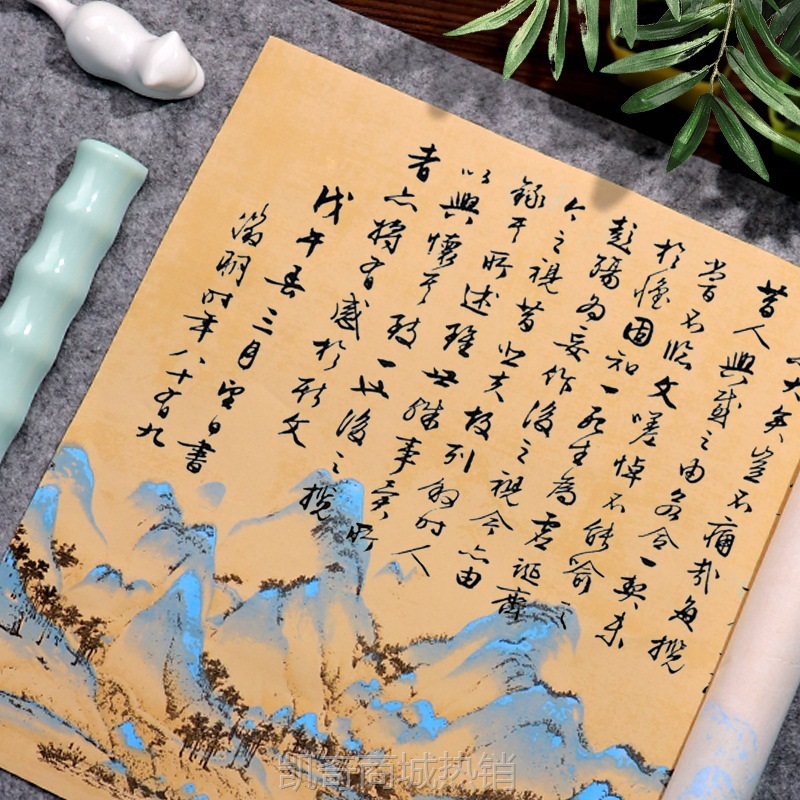 大矣豈不痛哉每攬
昔人興感之由若合一契未
嘗不臨文嗟悼不能喻之
於懷固知一死生為虛誕齊
彭殤為妄作後之視今亦由
今之視昔悲夫故列敘時人
錄其所述雖世殊事異所
以興懷其致一也後之攬
者亦將有感於斯文
戊午春三月望日書
朋時年八十有九
凯裔商城热销